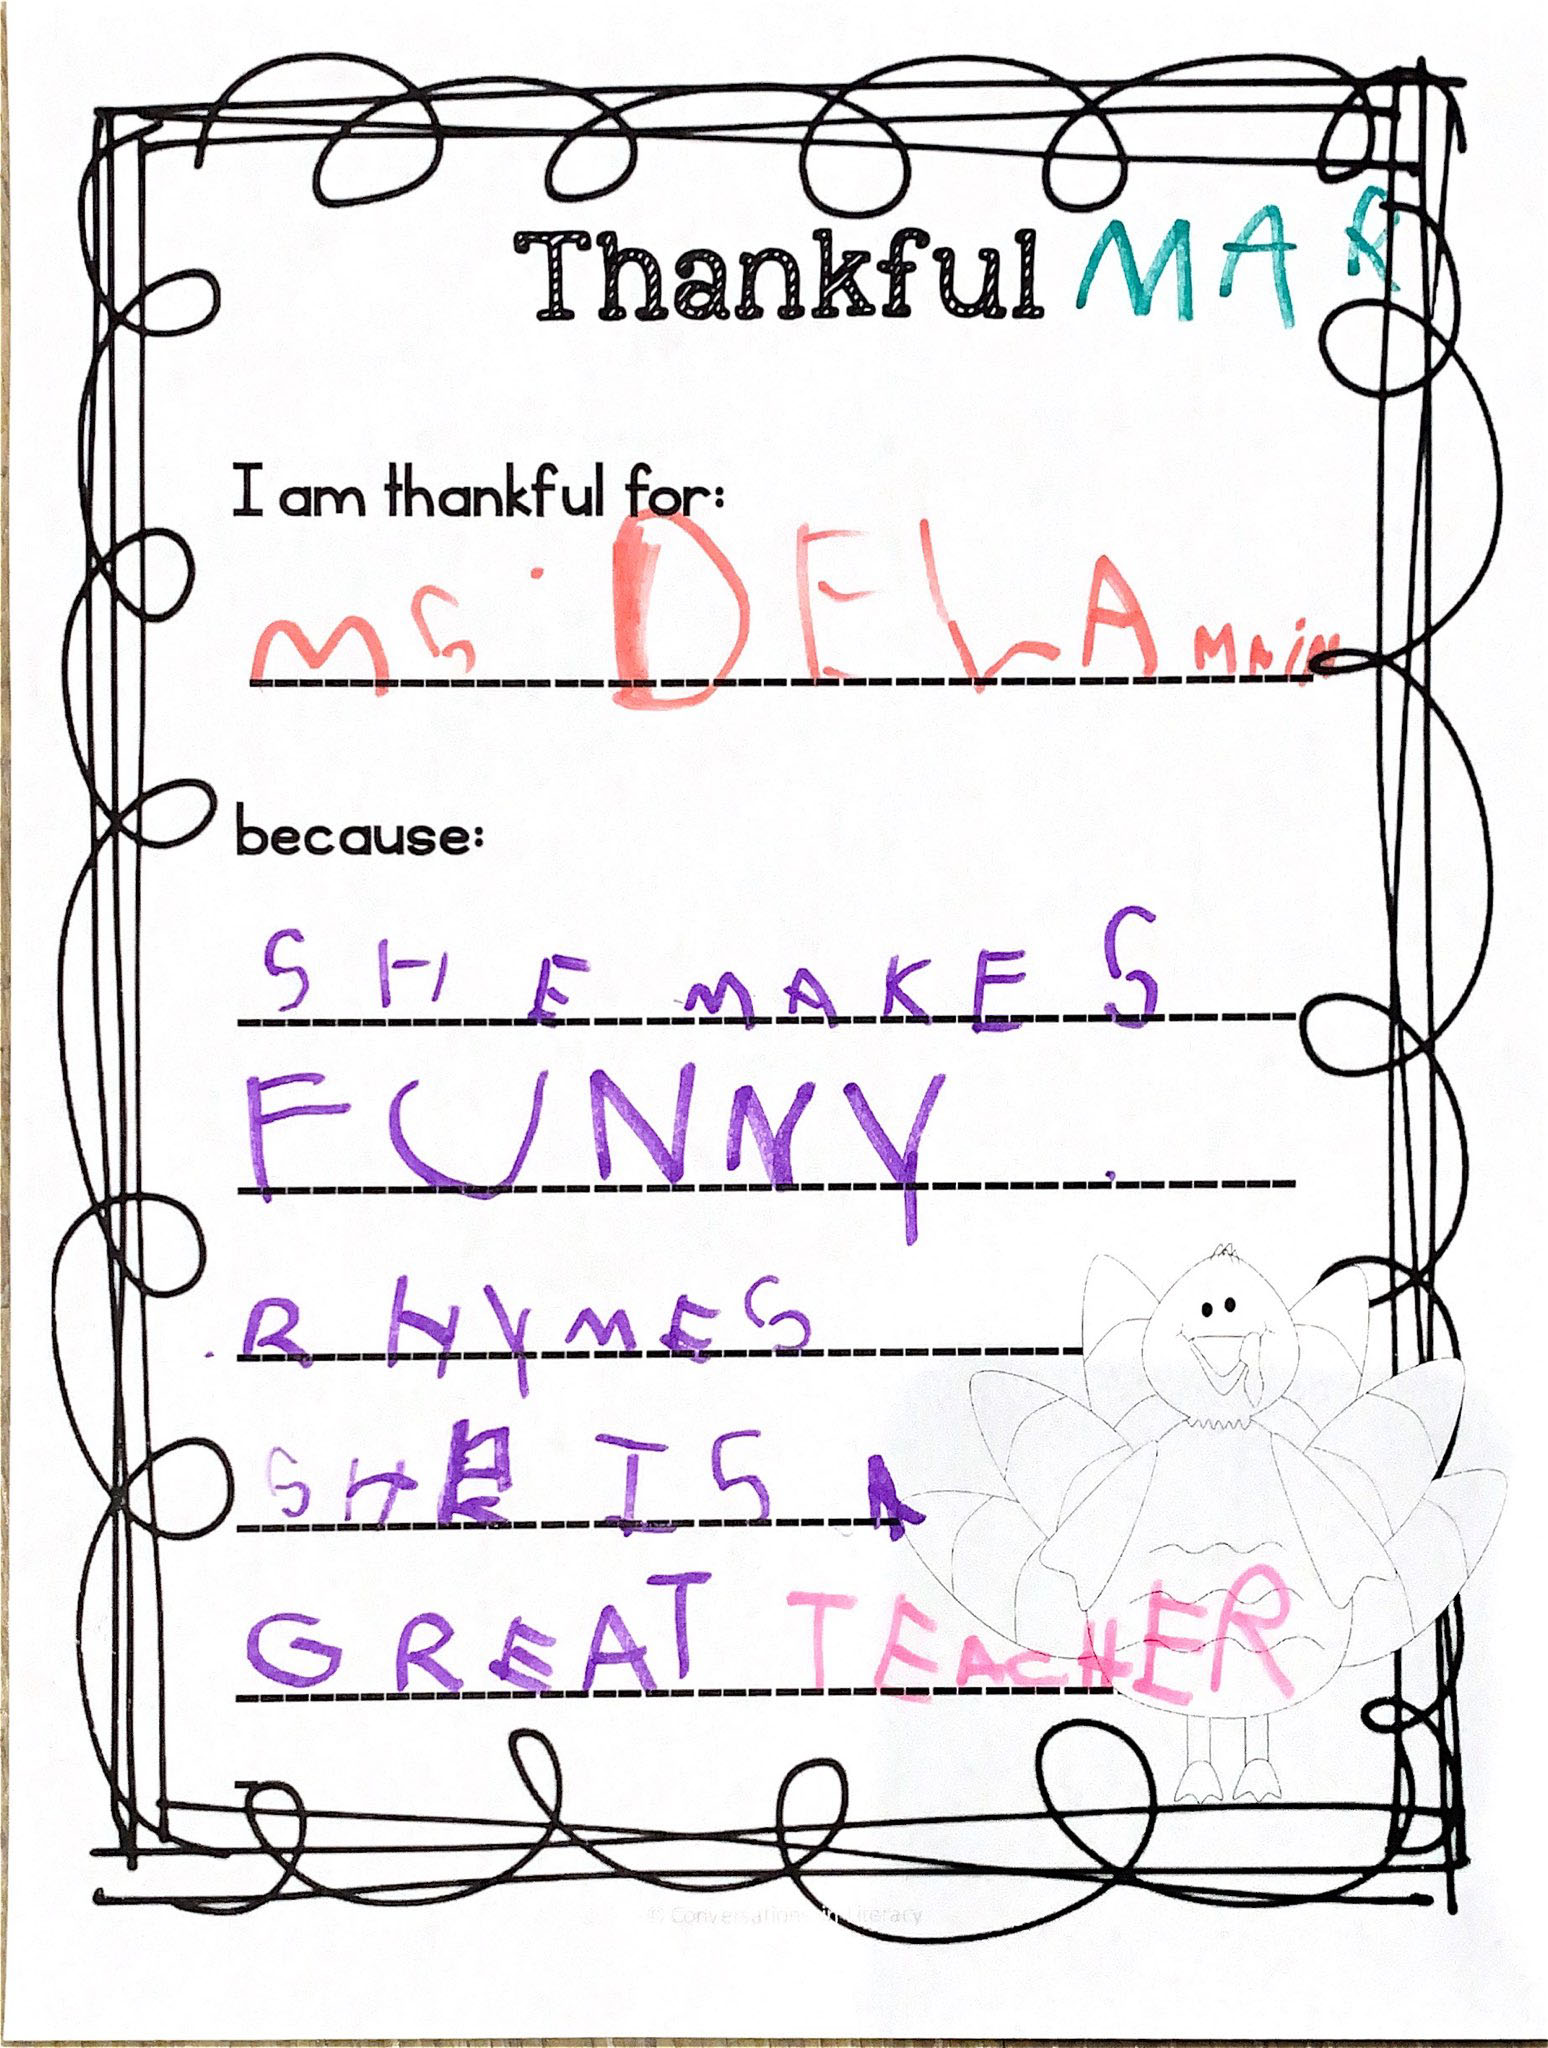 Thankful MAR
I am thankful for:
MS. DELAMNiN
because:
SHE MAKES
FUNNY.
RHYMES
SHE IS A
GREAT TEACHER
© Conversations in Literacy